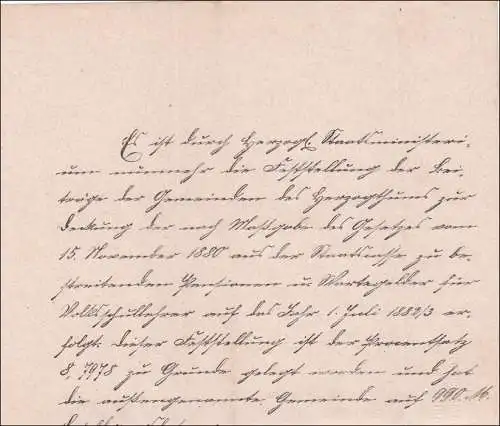 Es ist durch Herzogl. Staatsministeri-
um nunmehr die Feststellung der Bei-
träge der Gemeinden des Herzogthums zur
Deckung der nach Maßgabe des Gesetzes vom
15. November 1880 aus der Staatscasse zu be-
streitenden Pensionen u. Wartegelder für
Volksschullehrer auf das Jahr 1. Juli 1882/3 er-
folgt. Dieser Feststellung ist der Procentsatz
8,7978 zu Grunde gelegt worden und hat
die außengenannte Gemeinde auf 990 M.